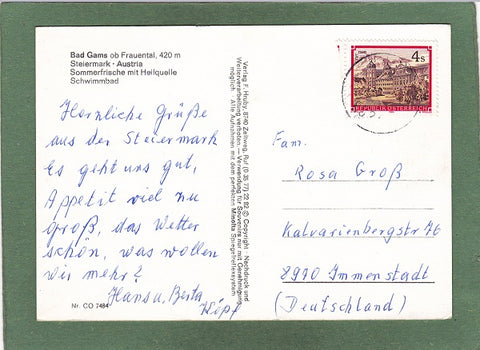 Bad Gams ob Frauental, 420 m
Steiermark - Austria
Sommerfrische mit Heilquelle
Schwimmbad
Herzliche Grüße
aus der Steiermark
Es geht uns gut,
Appetit viel zu
groß, das Wetter
schön, was wollen
wir mehr?
Hans u. Berta
Nr. CO 7484
Verlag F. Hruby, 8740 Zeltweg, Ruf (0 35 77) 22 6 © Copyright Nachdruck und
Weiterverarbeitung verboten — Verwendung für Souvenirs nur mit Genehmigung
möglich Alle Aufnahmen mit dem perfekten Spiegelreflexsystem
4 S
REPUBLIK ÖSTERREICH
Fam.
Rosa Groß
Kalvarienbergstr 76
8970 Immenstadt
(Deutschland)